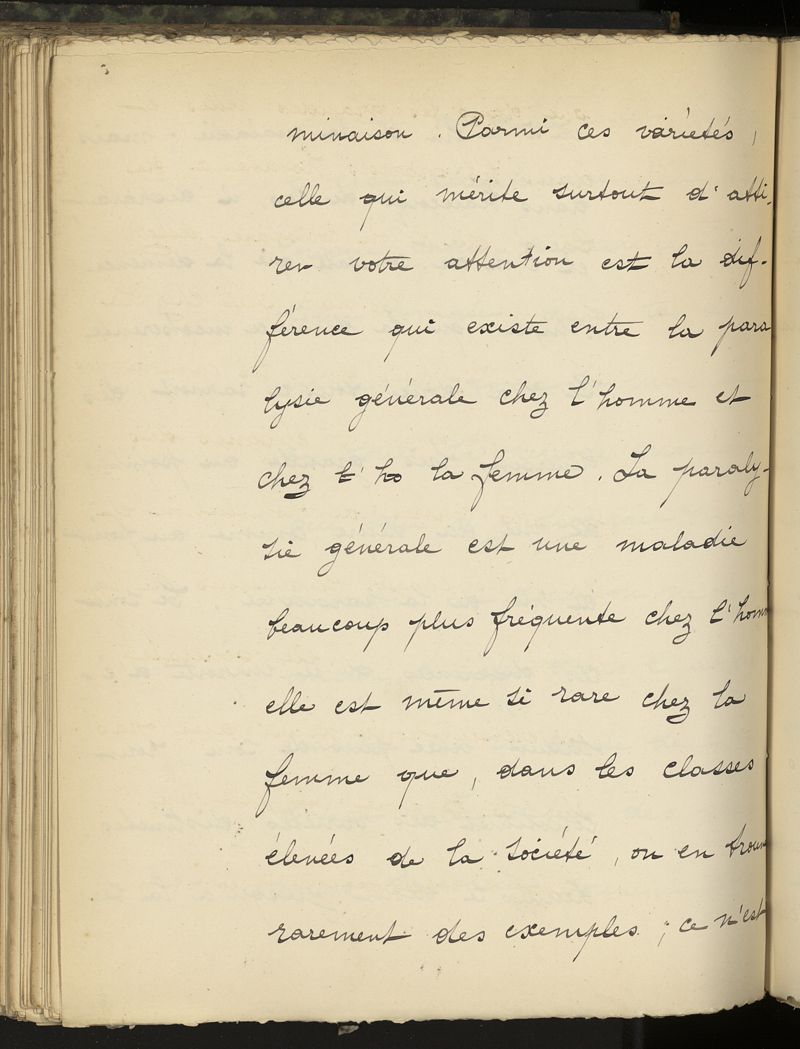 minaison. Parmi ces variétés,
celle qui mérite surtout d'atti-
rer votre attention est la dif-
férence qui existe entre la para
lysie générale chez l'homme et
chez l'ho la femme. La paraly-
sie générale est une maladie
beaucoup plus fréquente chez l'homm
elle est même si rare chez la
femme que, dans les classes
élevées de la société, on en trouv
rarement des exemples; ce n'est